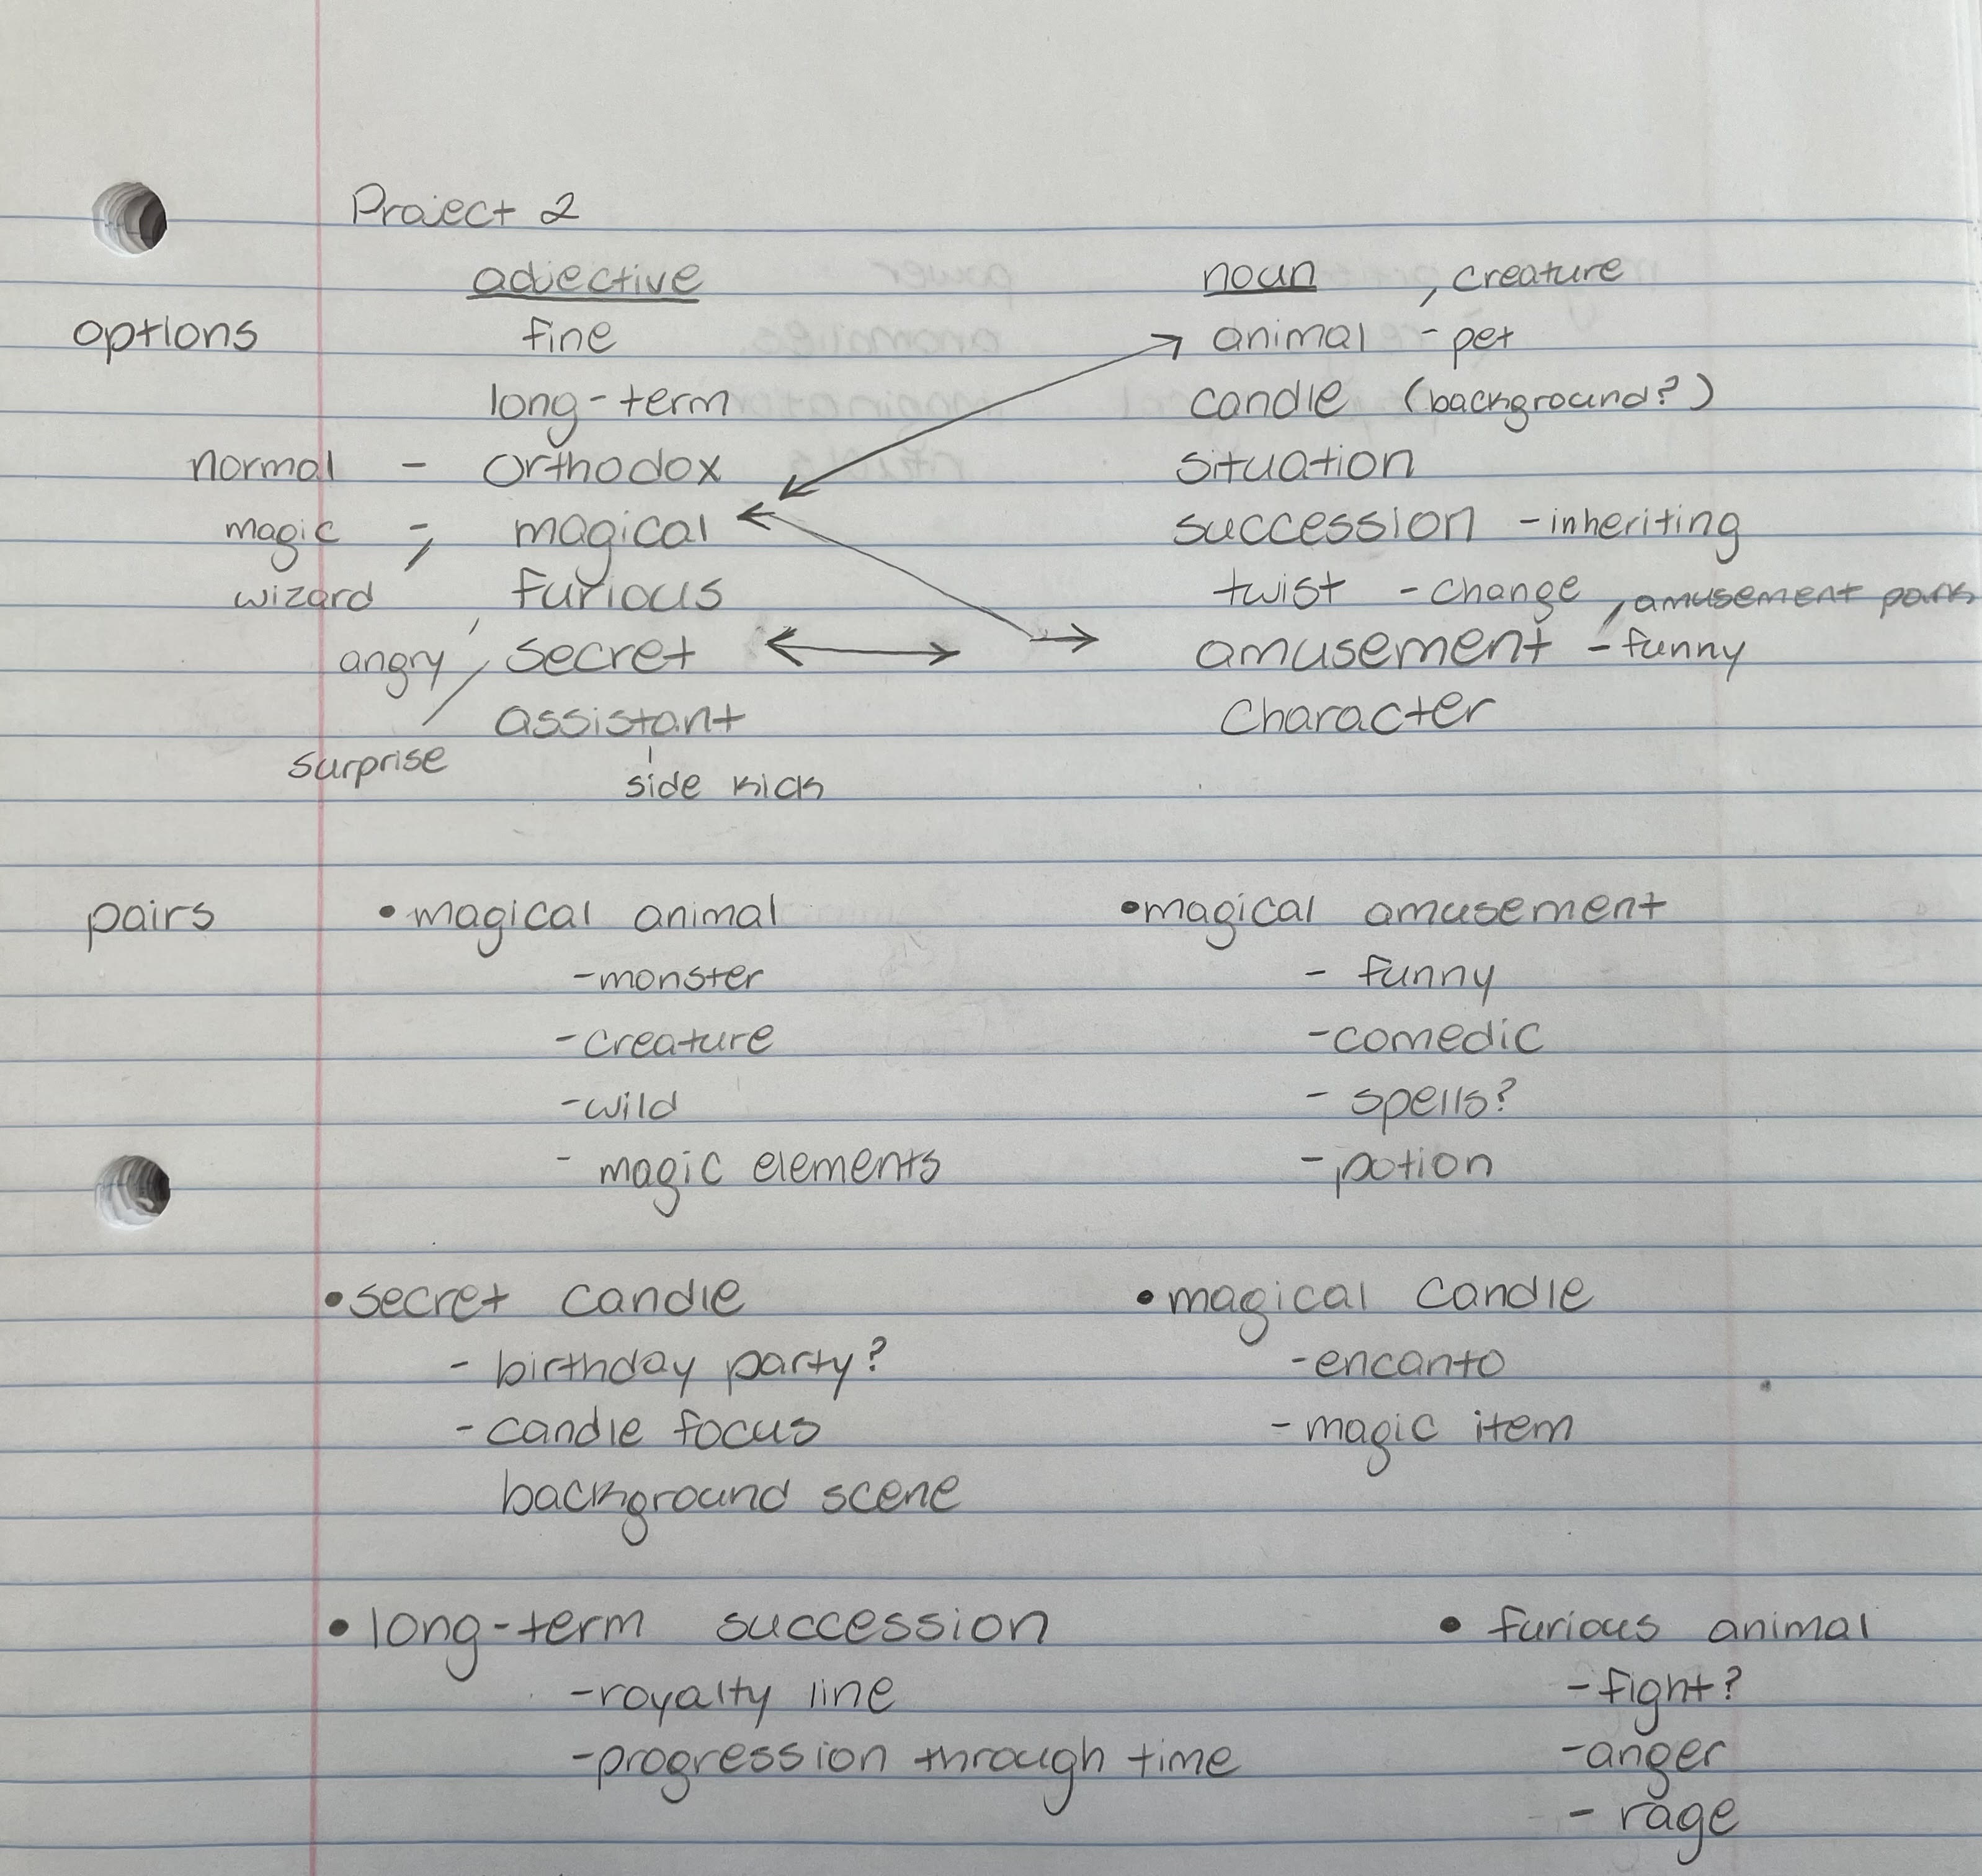 Project 2
adjective noun , creature
options fine animal - pet
long-term candle (background?)
normal - orthodox situation
magic - magical succession - inheriting
wizard , furious twist - change , amusement park
angry , secret amusement - funny
assistant character
surprise
side kick
pairs • magical animal • magical amusement
- monster - funny
- creature - comedic
- wild - spells?
- magic elements - potion
• secret candle • magical candle
- birthday party? - encanto
- candle focus - magic item
background scene
• long-term succession • furious animal
- royalty line - fight?
- progression through time - anger
- rage